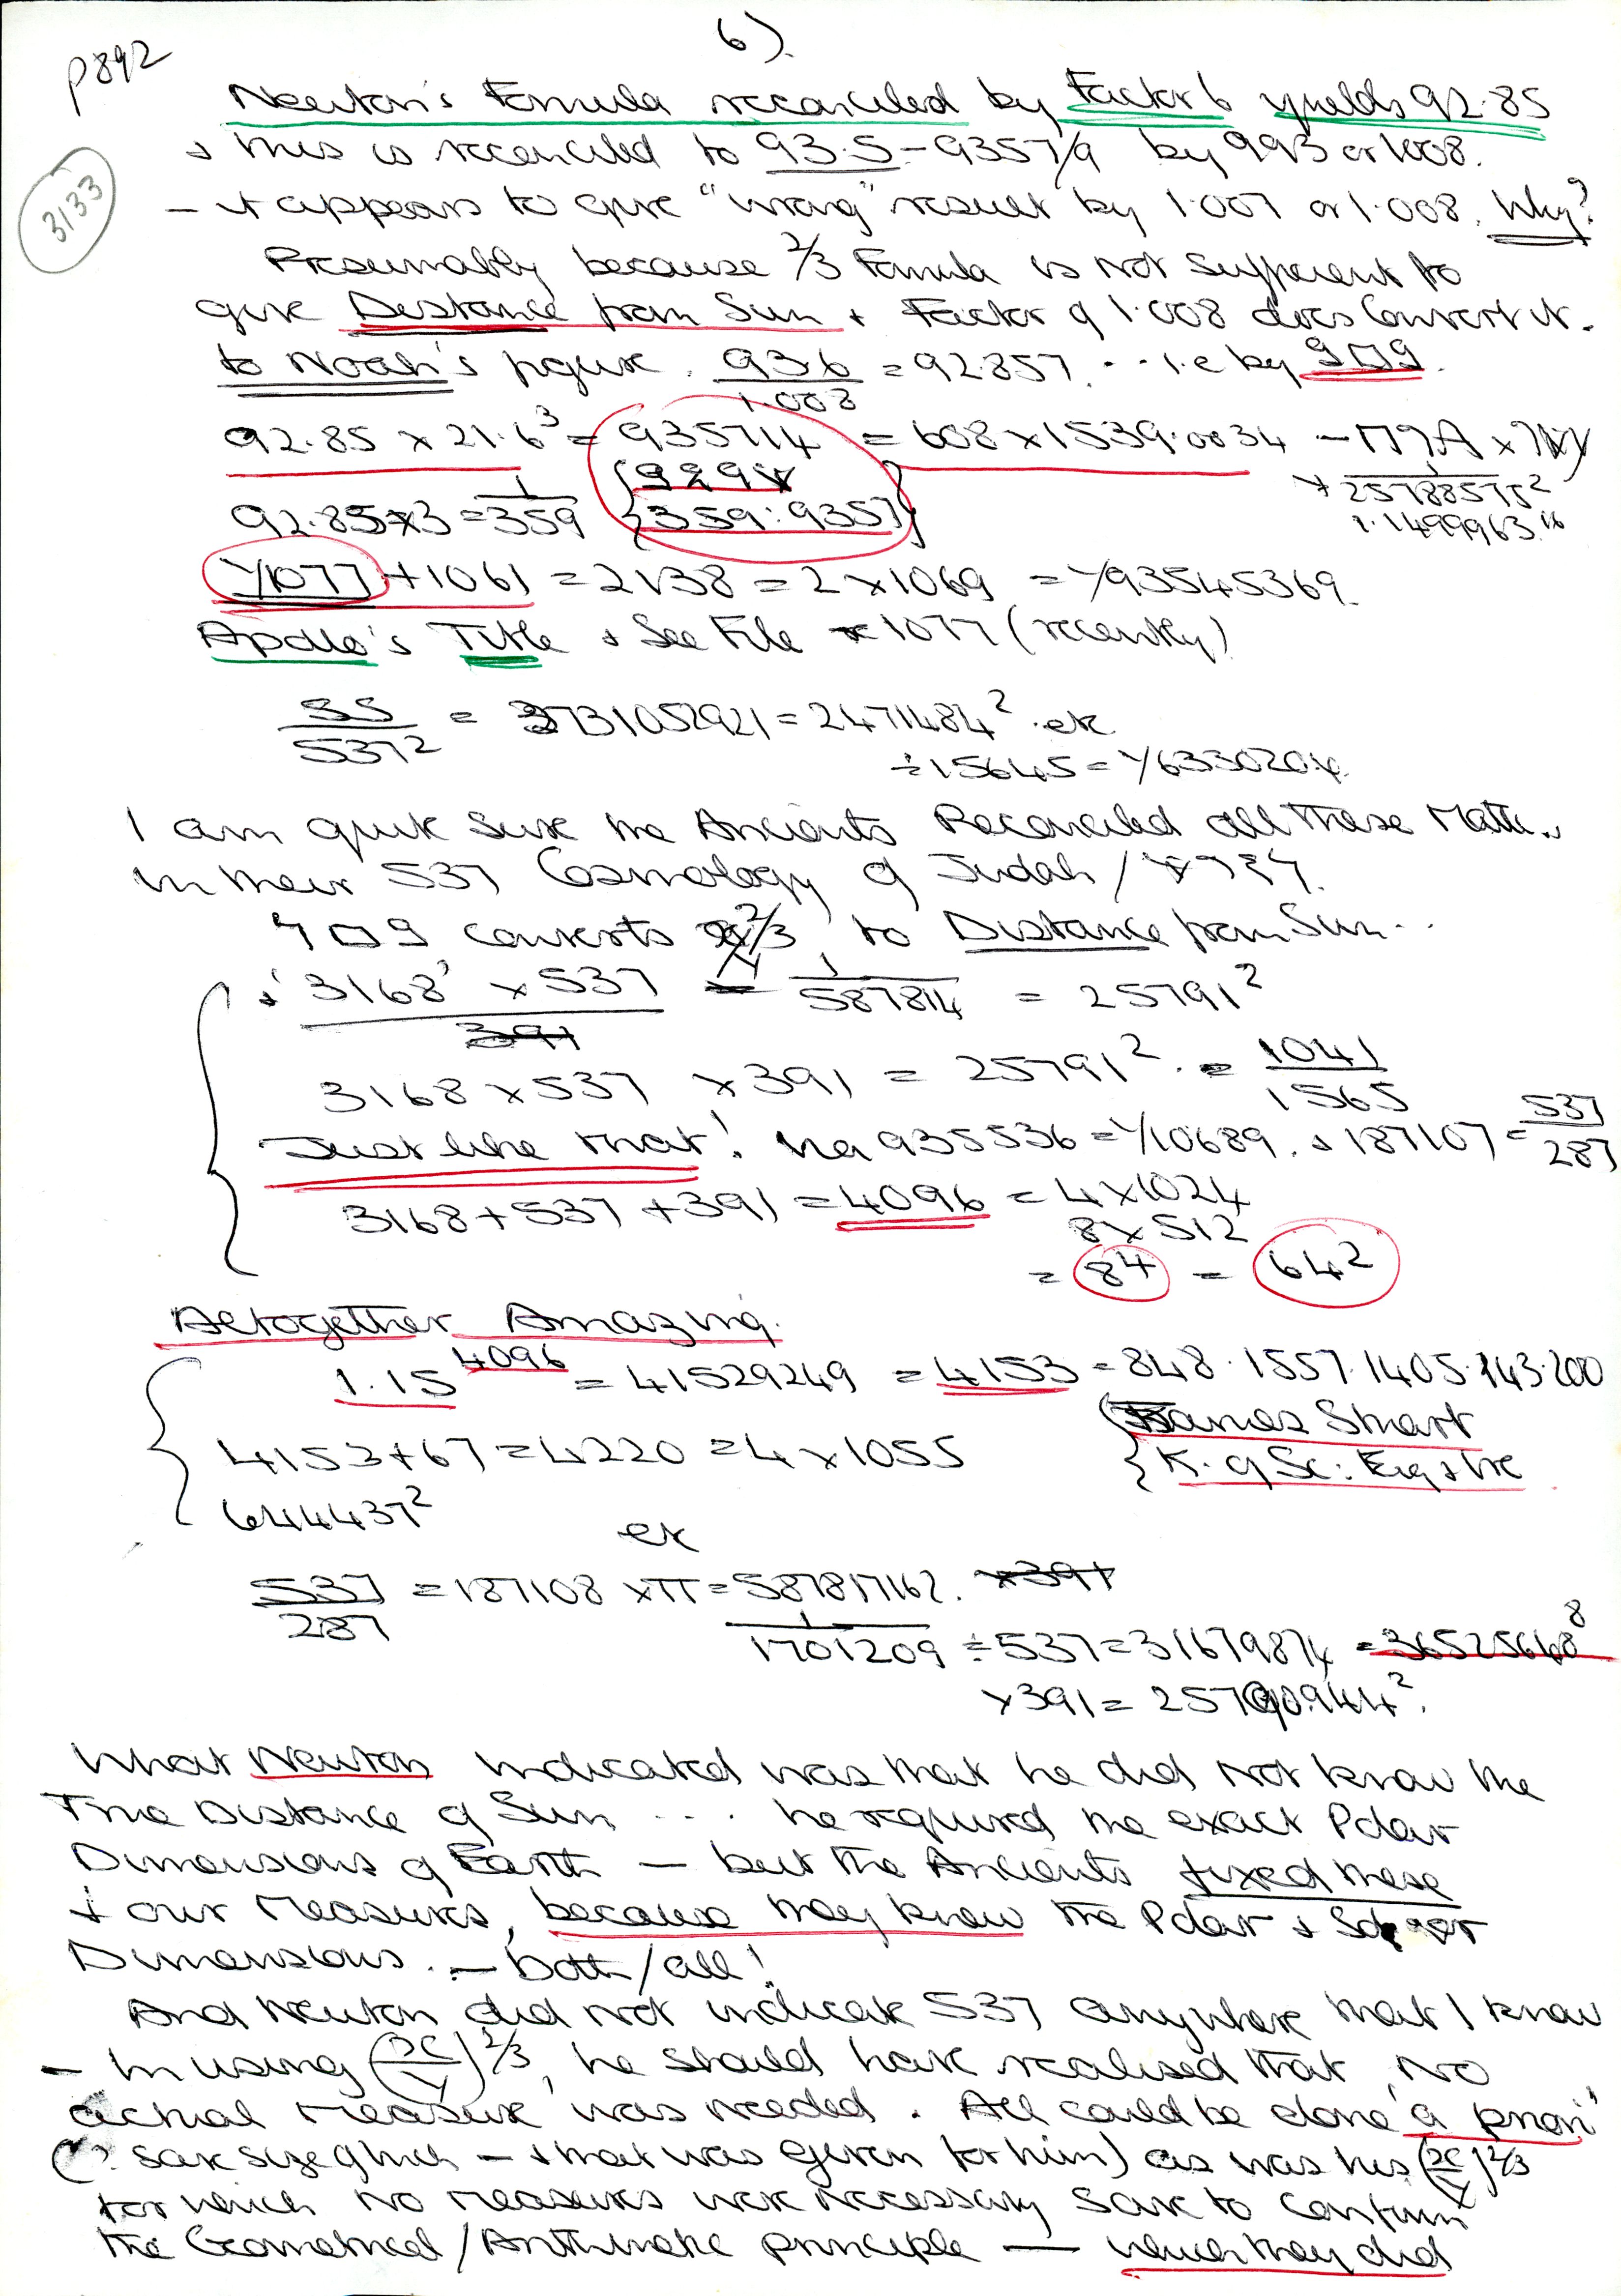 6).
p892
Newton's Formula reconciled by Factor 6 yields 92.85
+ this is reconciled to 93.5 - 9357/9 by 993 or 1008.
3133
- it appears to give "wrong" result by 1.007 or 1.008. Why?
Presumably because 2/3 Formula is not sufficient to
give Distance from Sun + Factor of 1.008 does Convert it.
to Noah's figure. 93.6/1.008 = 92.857... i.e by
92.85 x 21.6³ = 935714 = 608 x 1539.0034
92.85 x 3 = 1/359 {359:9357}
+ 25788575²
1.1499963
1/1077 + 1061 = 2138 = 2 x 1069 = 1/93545369.
Apollo's Title + See File 1077 (recently)
= 3731052921 = 2471484² etc
÷ 15645 = 1/6330204
I am quite sure the Ancients Reconciled all these Matters
in their 537 Cosmology of Judah /
converts 2/3 to Distance from Sun..
+ '3168' x 537 1/587814 = 25791²
391
3168 x 537 x 391 = 25791². = 1041/1565
Just like that! 935536 = 1/10689. + 187107 = 537/287
3168 + 537 + 391 = 4096 = 4 x 1024
8 x 512
= 8⁴ = 64²
Altogether Amazing.
1.15⁴⁰⁹⁶ = 41529249 = 4153 = 848.1557.1405.143.200
{James Stuart
4153 + 67 = 4220 = 4 x 1055
{K. of Sc: Eng + Ire
644437²
etc
537/287 = 187108 x π = 587817162. x 391
1/1701209 ÷ 537 = 31679874 = 36525648⁸
x 391 = 257909.944².
What Newton indicated was that he did not know the
True Distance of Sun ... he required the exact Polar
Dimensions of Earth — but the Ancients fixed these
+ our Measures, because they knew the Polar + Solar
Dimensions. — both/all!
And Newton did not indicate 537 anywhere that I know
- In using (x/y)2/3, he should have realised that no
actual measure was needed. All could be done 'a priori'
(? save size of inch — + that was given for him) as was his (x/y)2/3
for which no measures were necessary save to confirm
the Geometrical/Arithmetic principle — which they did